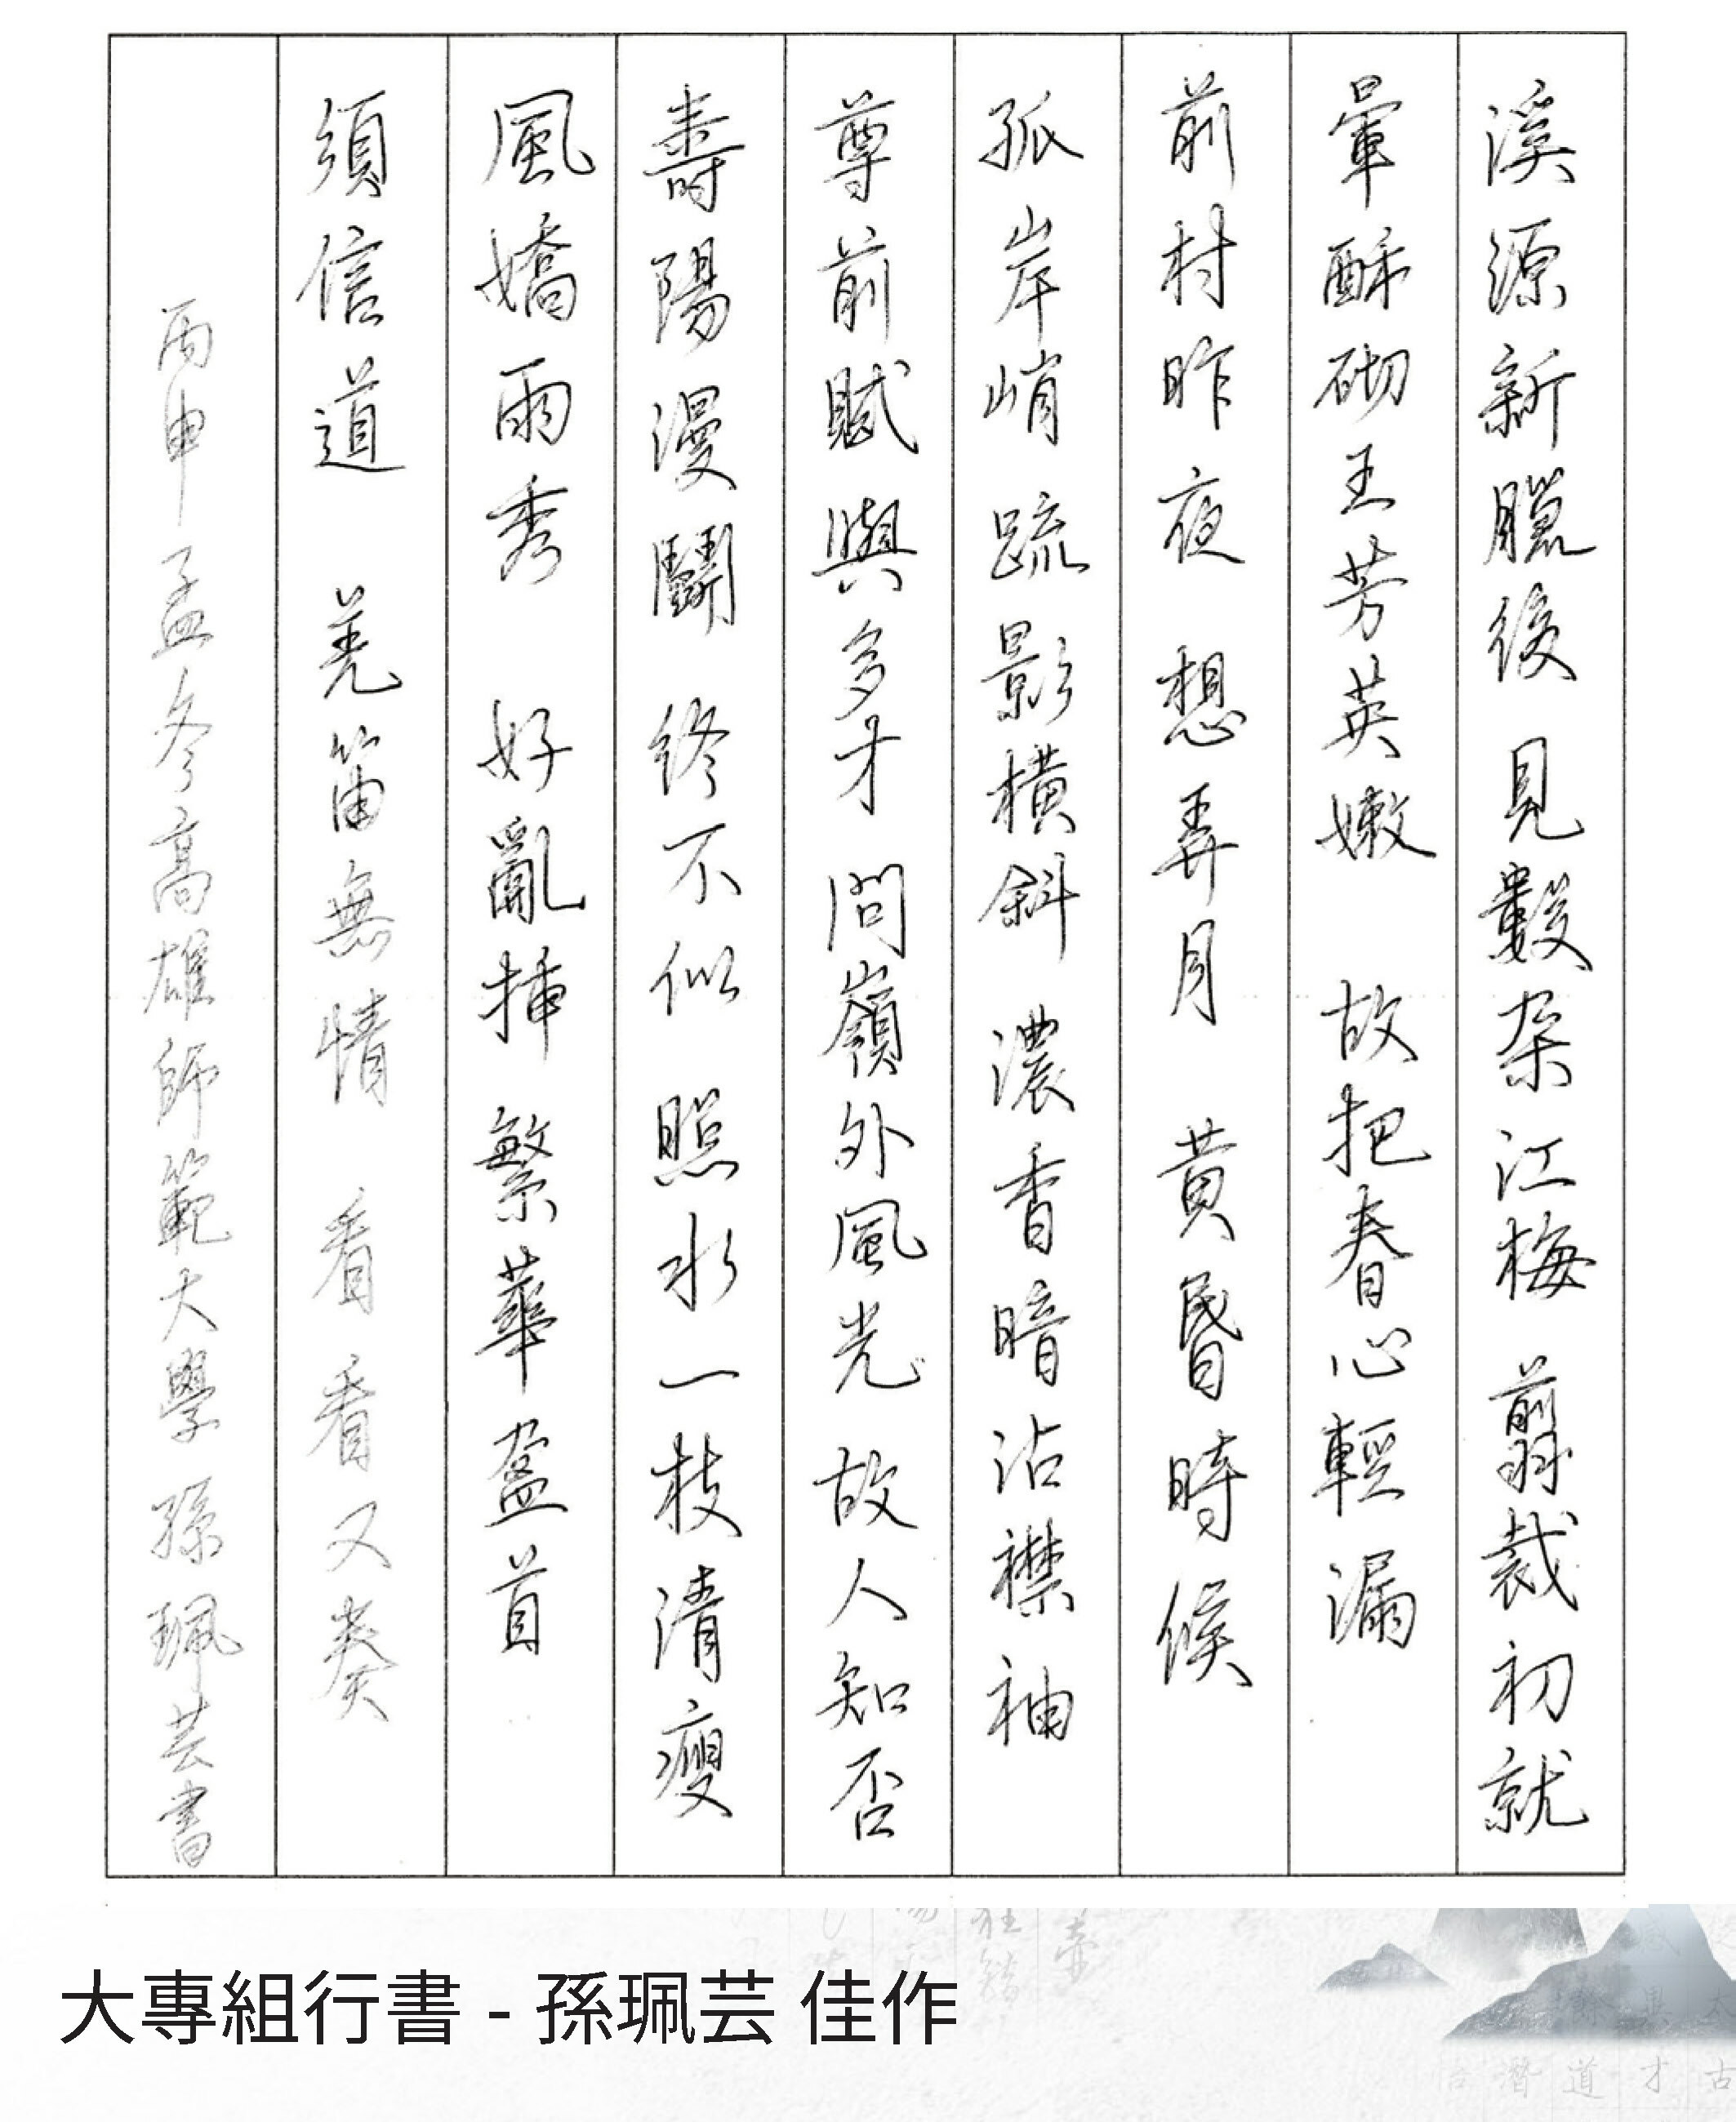 溪源新臘後 見數朵江梅 翦裁初就
暈酥砌玉芳英嫩 故把春心輕漏
前村昨夜 想弄月 黃昏時候
孤岸峭 疏影橫斜 濃香暗沾襟袖
尊前賦與多才 問嶺外風光 故人知否
壽陽漫鬬 終不似 照水一枝清瘦
風嬌雨秀 好亂插繁華盈首
須信道 羌笛無情 看看又奏
丙申孟冬高雄師範大學孫珮芸書
大專組行書 - 孫珮芸 佳作